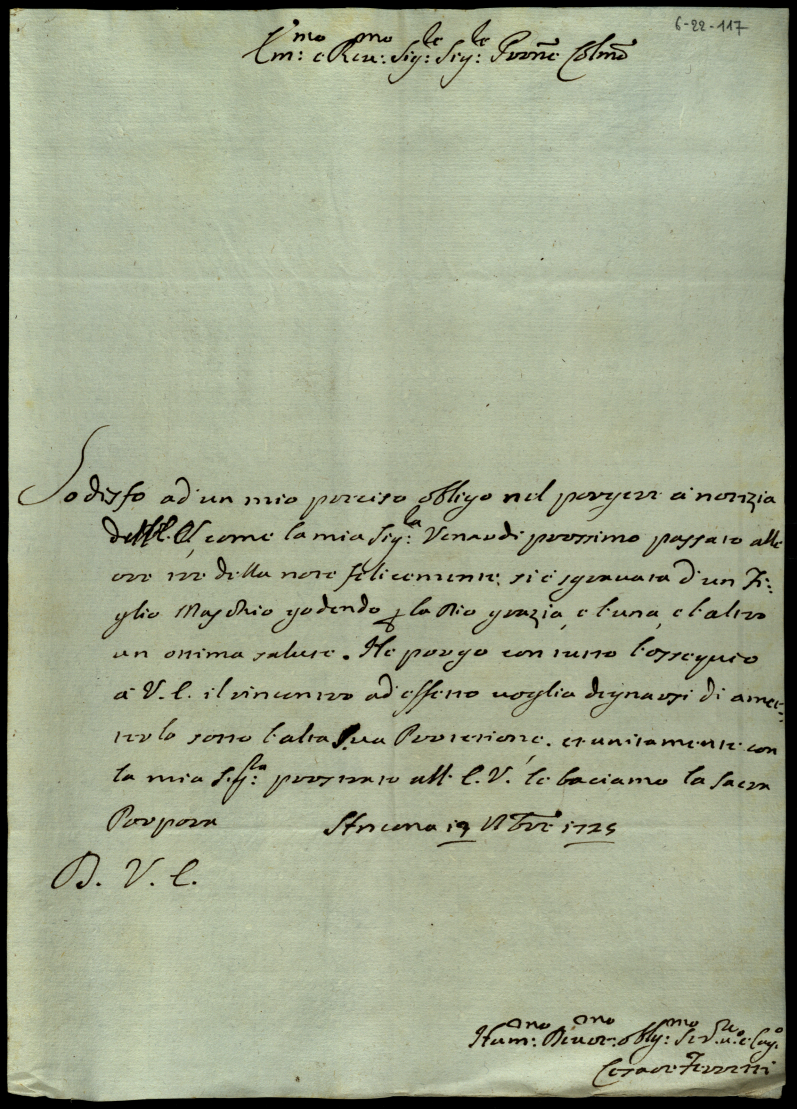 6-22-117
Em:mo e Rev:mo Sig:le Sig:le Prone Colmo
Sodisfo ad un mio preciso obligo nel porgere à notizia
dell'E. V. come la mia Sig:ra Venardi prossimo passato alle
ore tre della note felicemente si è sgravata d'un Fi:
glio Maschio godendo p la Dio grazia, e l'una, e l'altro
un ottima salute. Ne porgo con tutto l'ossequio
à V. E. il rincontro ad effetto voglia degnarsi di amet:
terlo sotto l'alta Sua Protezione. et unitamente con
la mia Sig:ra prostrato all'E. V. le baciamo la Sacra
Porpora Ancona 19 Xbre 1725
D. V. E.
Hum:mo Devot:mo oblig:mo Ser:re
Cesare Ferretti